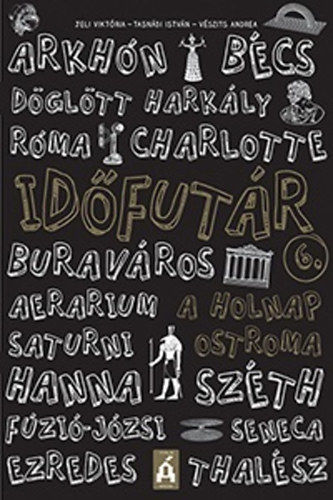 JELI VIKTÓRIA – TASNÁDI ISTVÁN – VÉSZITS ANDREA
ARKHÓN BÉCS
DÖGLÖTT HARKÁLY
RÓMA CHARLOTTE
IDŐFUTÁR
6.
BURAVÁROS
AERARIUM A HOLNAP
SATURNI OSTROMA
HANNA SZÉTH
FÚZIÓ-JÓZSI SENECA
EZREDES Á THALÉSZ